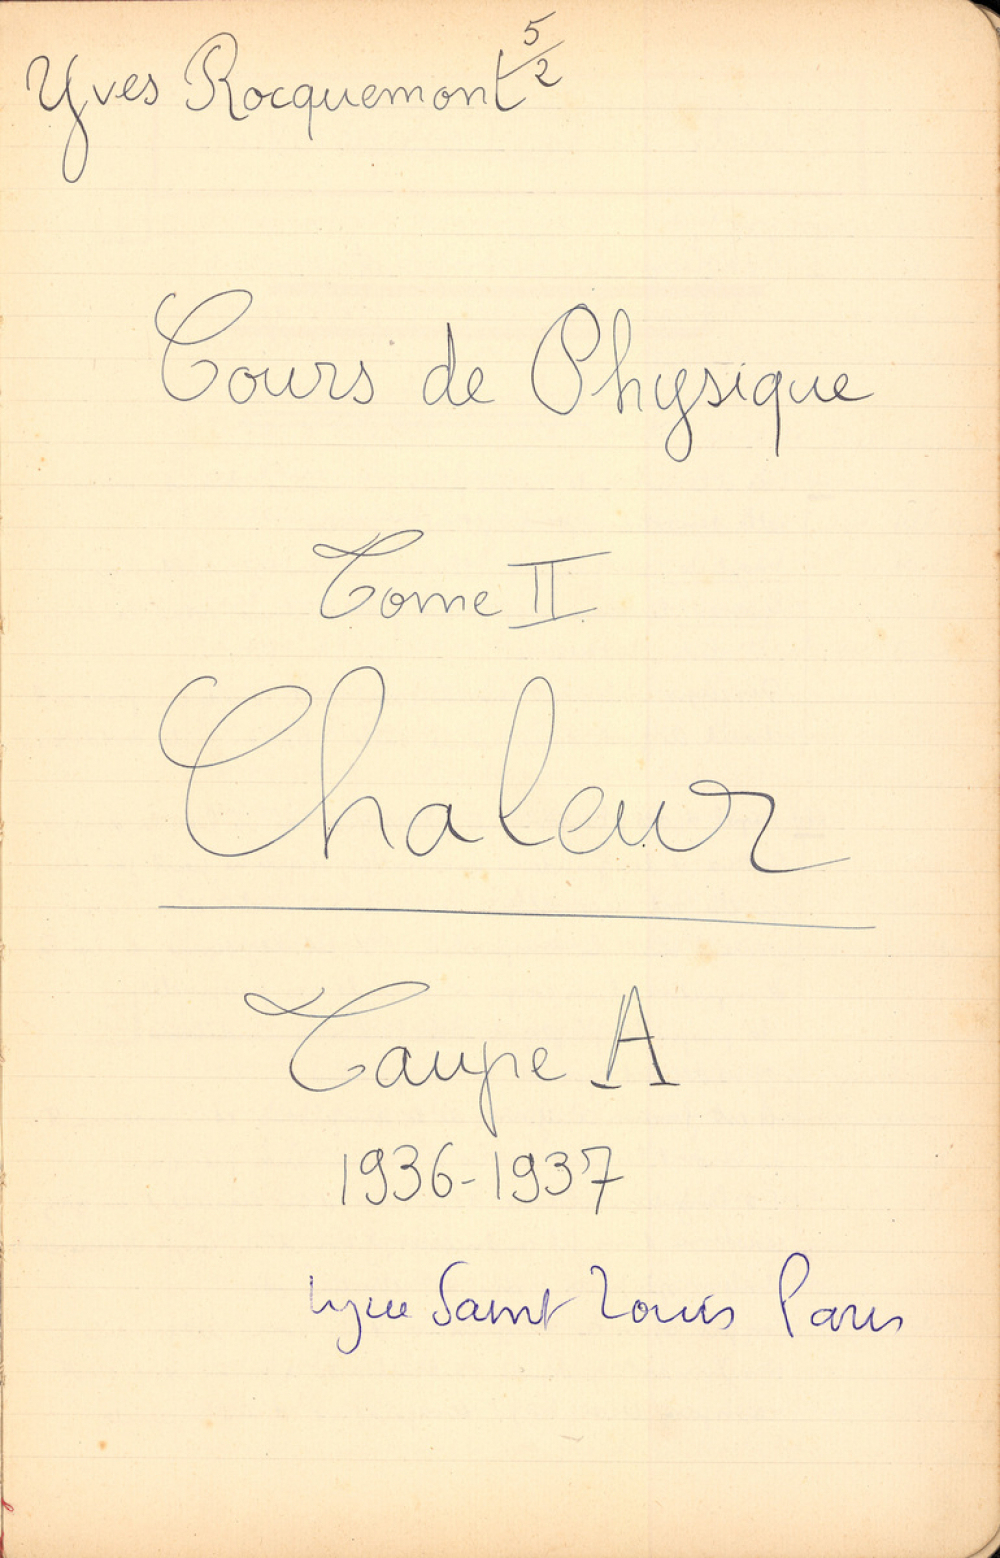 Yves Rocquemont 5/2
Cours de Physique
Tome II
Chaleur
Taupe A
1936-1937
lycée Saint Louis Paris